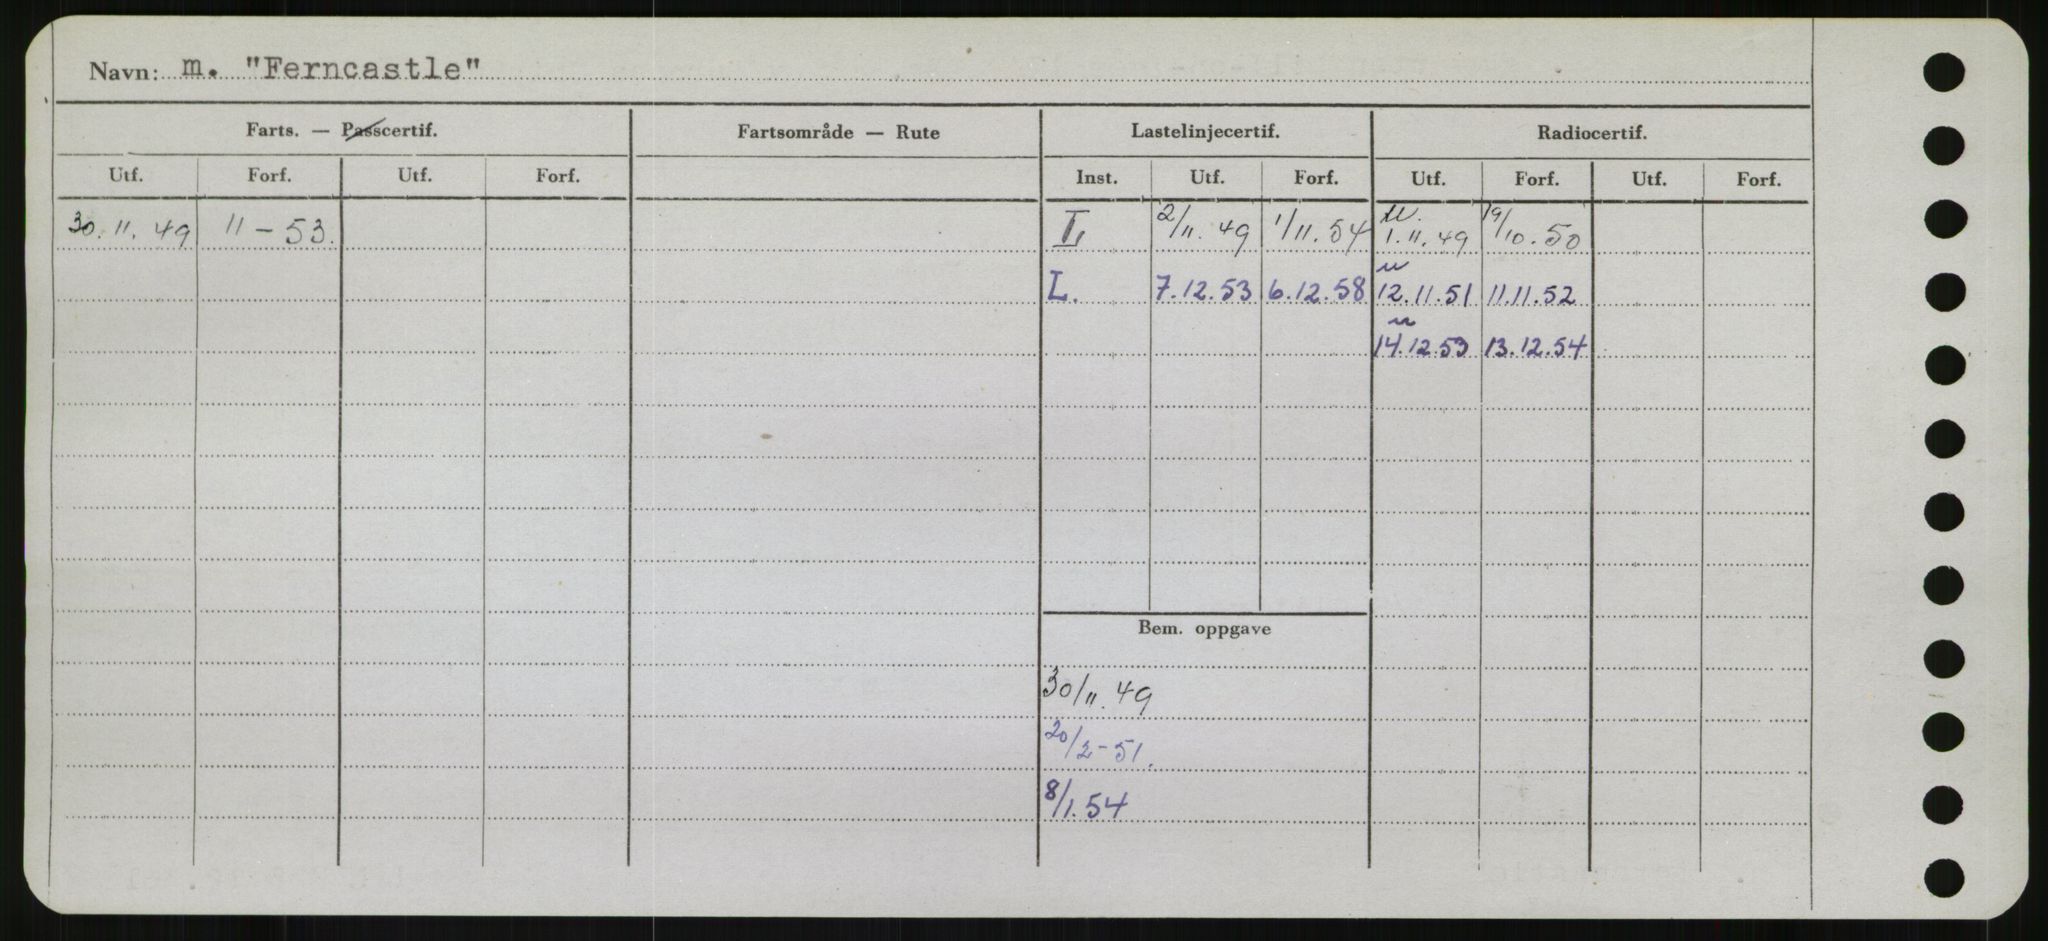 Navn: m. "Ferncastle"
Farts. — Passcertif. Fartsområde — Rute Lastelinjecertif. Radiocertif.
Utf. Forf. Utf. Forf. Inst. Utf. Forf. Utf. Forf. Utf. Forf.
30.11.49 11-53. L 2/11.49 1/11.54 u. 1.11.49 19/10.50
L. 7.12.53 6.12.58 u 12.11.51 11.11.52
u 14.12.53 13.12.54
Bem. oppgave
30/11.49
20/2-51.
8/1.54